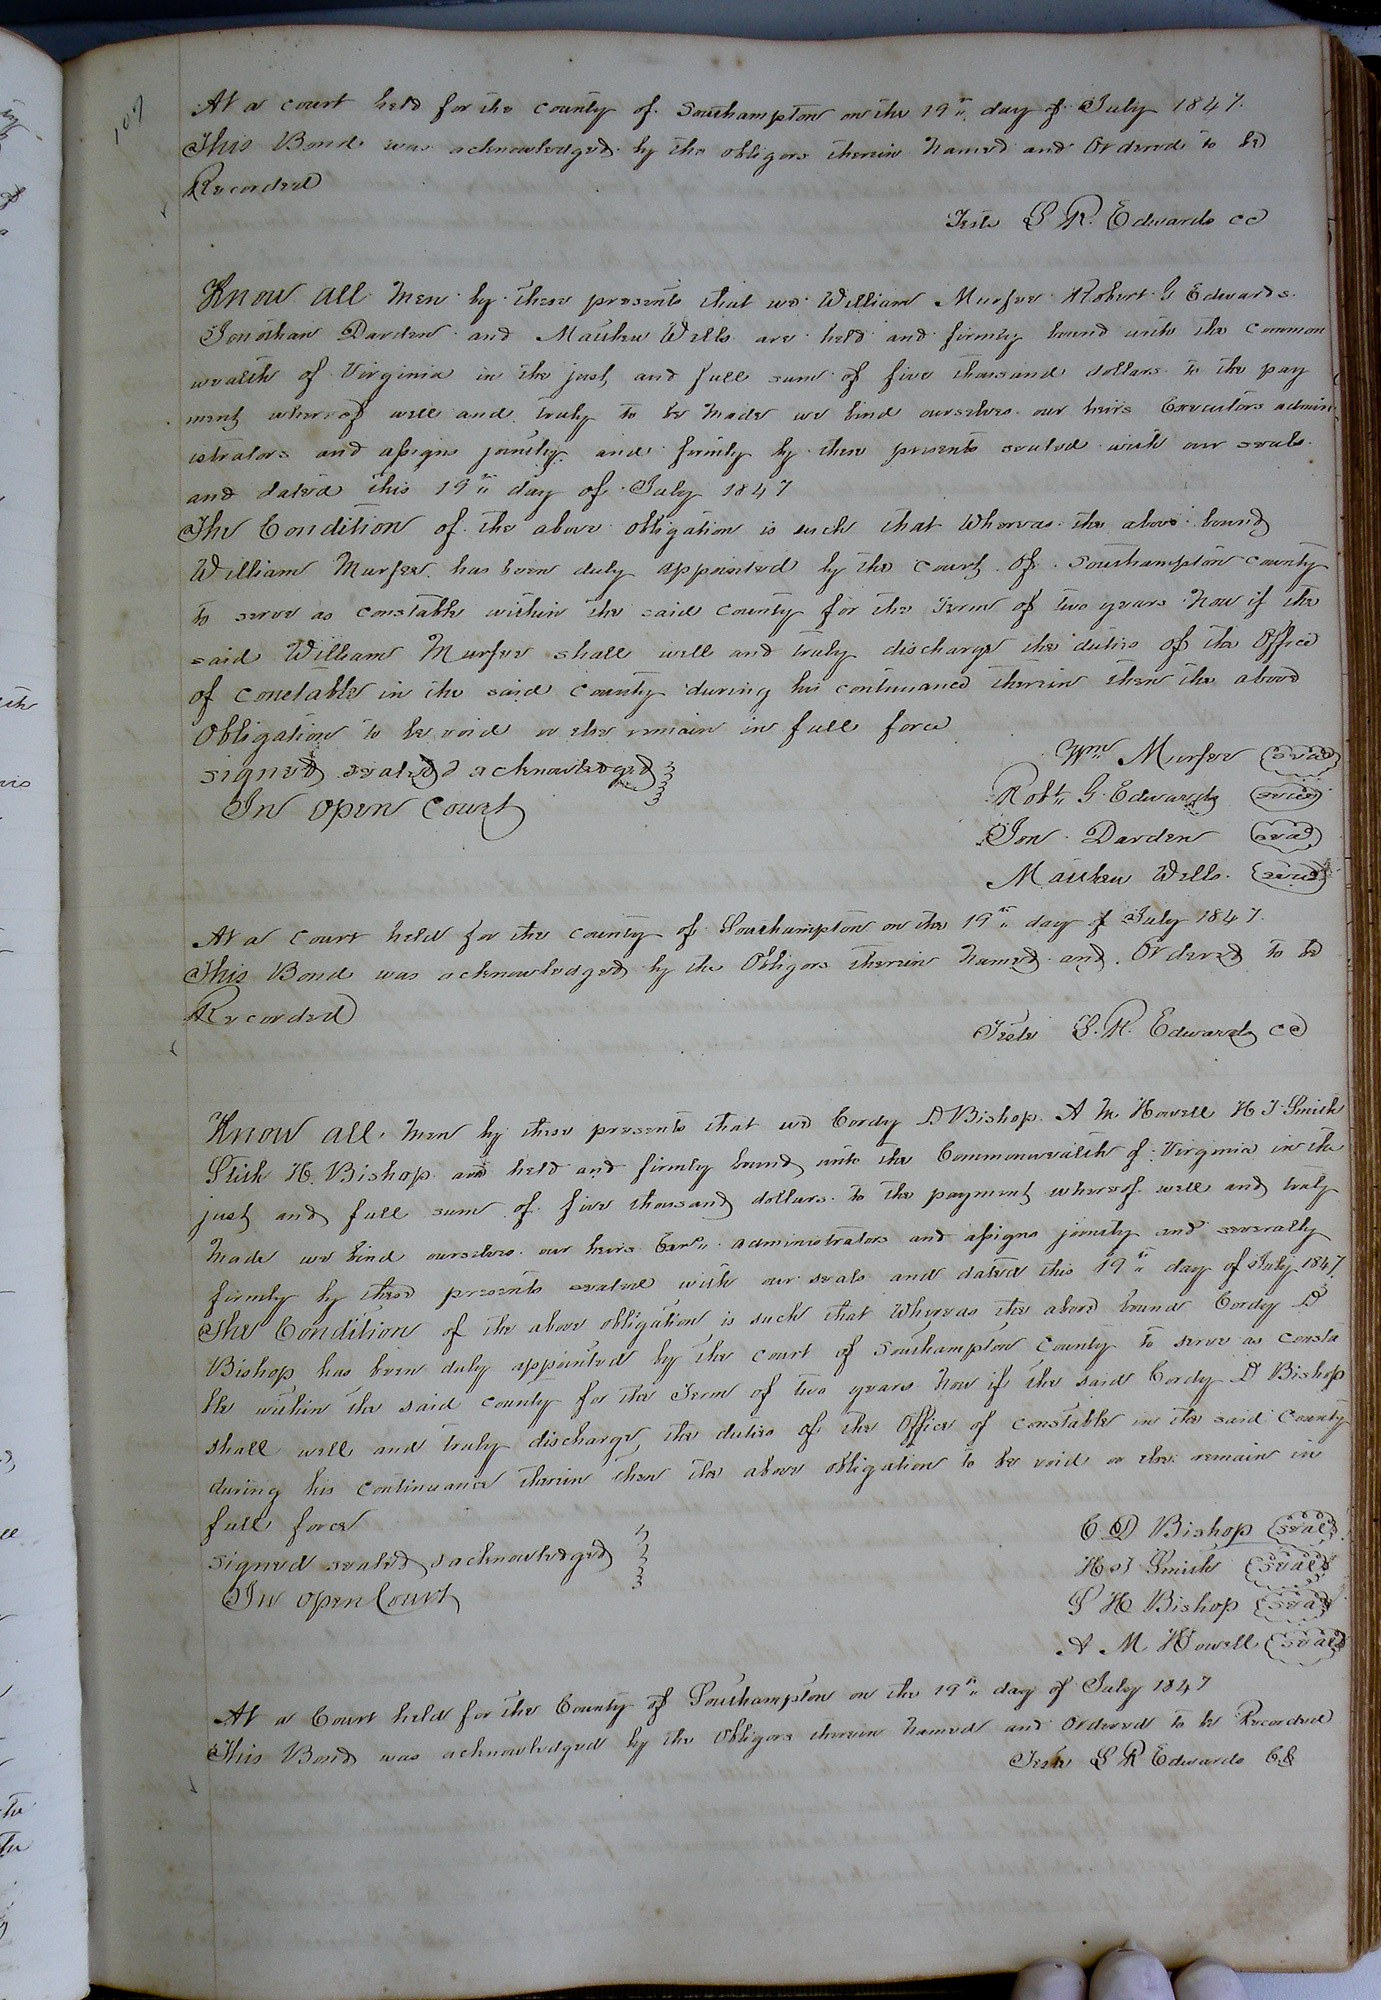 107
At a court held for the county of Southampton on the 19th day of July 1847.
This Bond was acknowledged by the obligors therein named and Ordered to be
Recorded
Teste L R. Edwards cc
Know all men by these presents that we William Murfee Robert G Edwards
Jonathan Darden and Mathew Wells are held and firmly bound unto the common
wealth of Virginia in the just and full sum of five thousand dollars to the pay
ment whereof well and truly to be made we bind ourselves our heirs Executors admin
istrators and assigns jointly and firmly by these presents sealed with our seals
and dated this 19th day of July 1847
The Condition of the above obligation is such that Whereas the above bound
William Murfee has been duly appointed by the court of Southampton county
to serve as constable within the said county for the Term of two years Now if the
said William Murfee shall well and truly discharge the duties of the Office
of constable in the said county during his continuance therein then the above
Obligation to be void or else remain in full force
signed sealed & acknowledged
In open Court
Wm Murfee seal
Robt G Edwards seal
Jon Darden seal
Mathew Wells seal
At a Court held for the county of Southampton on the 19th day of July 1847.
This Bond was acknowledged by the Obligors therein Named and Ordered to be
Recorded
Teste L. R. Edwards cc
Know all men by these presents that we Cordy D Bishop A M Howell H J Smith
Stith H. Bishop are held and firmly bound unto the Commonwealth of Virginia in the
just and full sum of five thousand dollars to the payment whereof well and truly
made we bind ourselves our heirs Exrs administrators and assigns jointly and severally
firmly by these presents sealed with our seals and dated this 19th day of July 1847
The Condition of the above obligation is such that Whereas the above bound Cordy D
Bishop has been duly appointed by the court of Southampton County to serve as consta
ble within the said county for the Term of two years Now if the said Cordy D Bishop
shall well and truly discharge the duties of the Office of constable in the said County
during his continuance therein then the above obligation to be void or else remain in
full force
signed sealed & acknowledged
In open Court
C D Bishop seal
H J Smith seal
S H Bishop seal
A M Howell seal
At a Court held for the County of Southampton on the 19th day of July 1847
This Bond was acknowledged by the Obligors therein named and Ordered to be Recorded
Teste L R Edwards CC